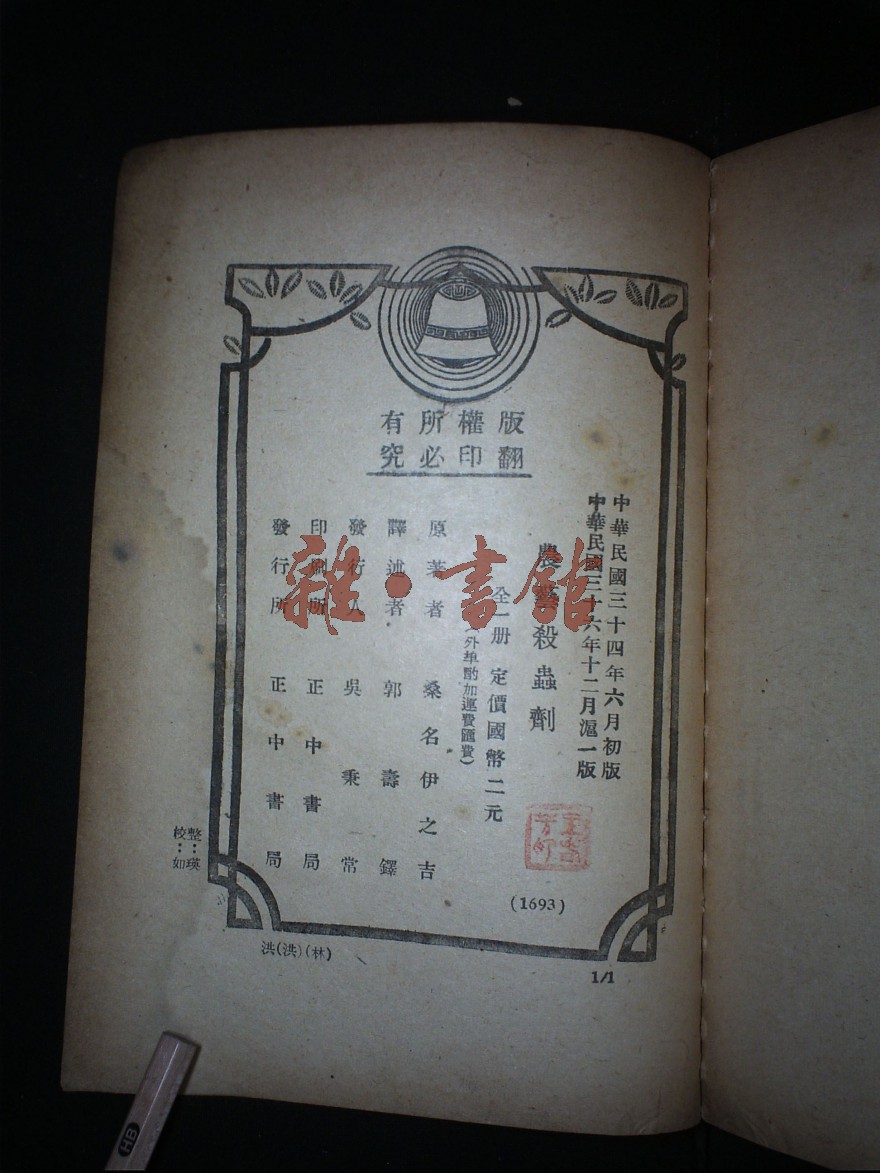 版權所有
翻印必究
中華民國三十四年六月初版
中華民國三十六年十二月滬一版
農藝殺蟲劑
全一册 定價國幣二元
(外埠酌加運費匯費)
原著者 桑名伊之吉
譯述者 郭壽鐸
發行人 吳秉常
印刷所 正中書局
發行所 正中書局
(1693)
整：瑛
校：如
洪(洪)(林)
1/1
雜·書館
HB